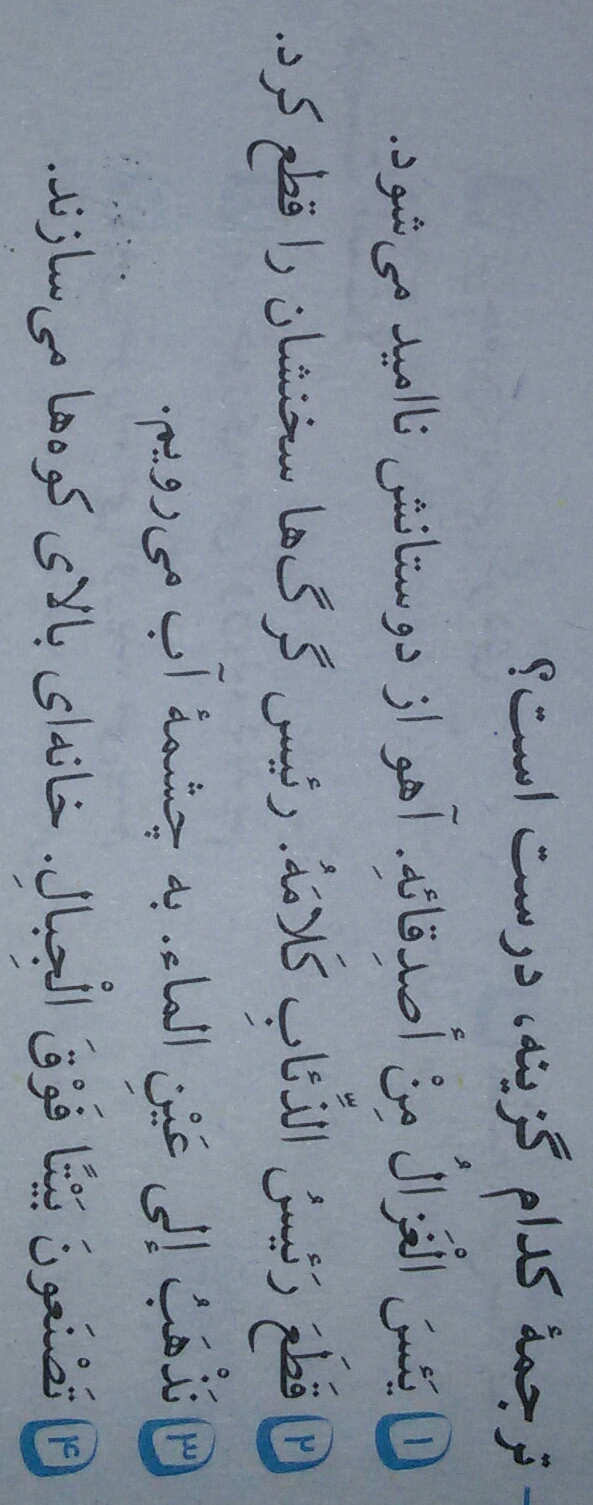 - ترجمهٔ کدام گزینه، درست است؟
۱ یَئسَ الْغَزالُ مِنْ أصدِقائهِ. آهو از دوستانش ناامید می‌شود.
۲ قَطَعَ رَئیسُ الذِّئابِ کَلامَهُ. رئیس گرگ‌ها سخنشان را قطع کرد.
۳ نَذْهَبُ إلی عَیْنِ الماء. به چشمهٔ آب می‌رویم.
۴ تَصْنَعونَ بَیْتًا فَوْقَ الْجِبالِ. خانه‌ای بالای کوه‌ها می‌سازند.